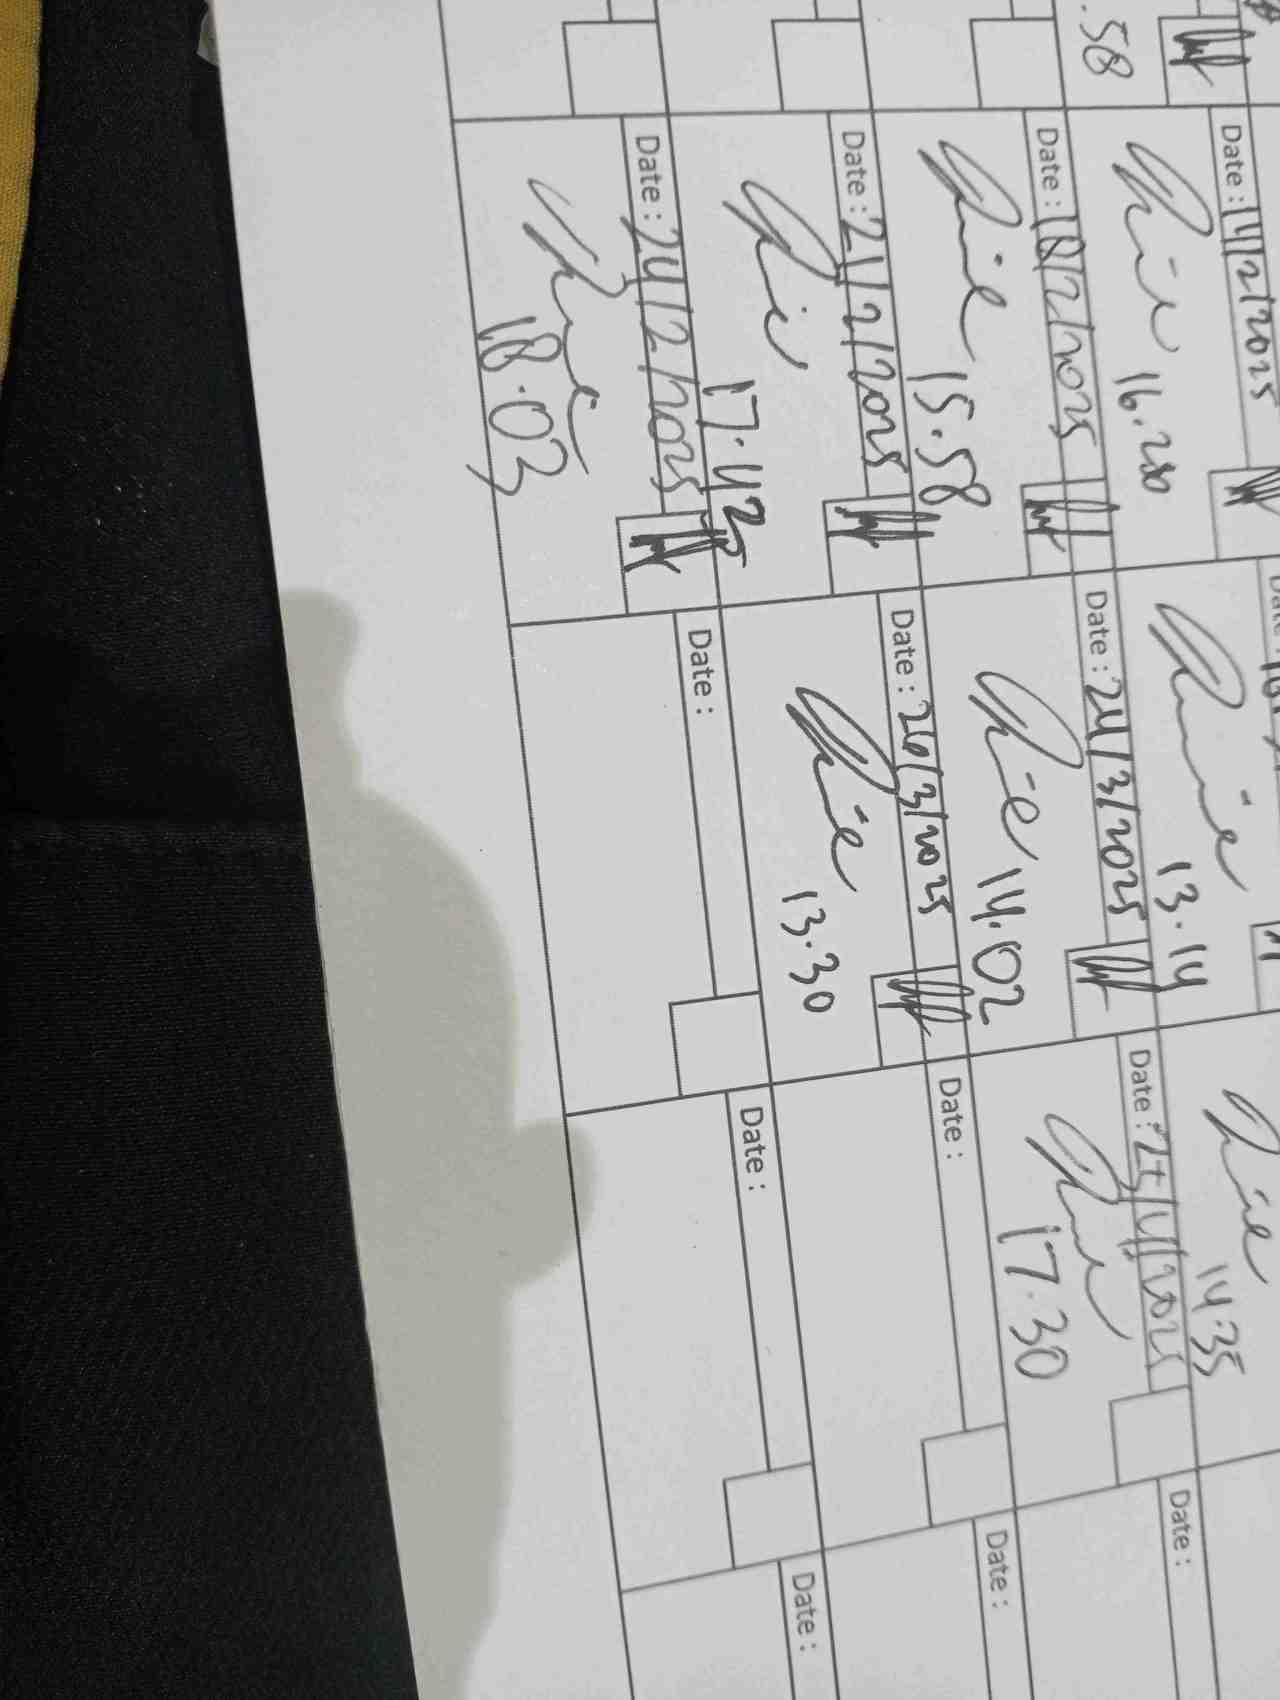 Date : 14/2/2025
.58
13.14
14.35
Date : 18/2/2025
Date : 24/3/2025
Date : 25/4/2025
Date :
15.58
14.02
17.30
Date : 21/2/2025
Date : 26/3/2025
Date :
Date :
17.42
13.30
Date : 24/2/2025
Date :
Date :
Date :
18.03